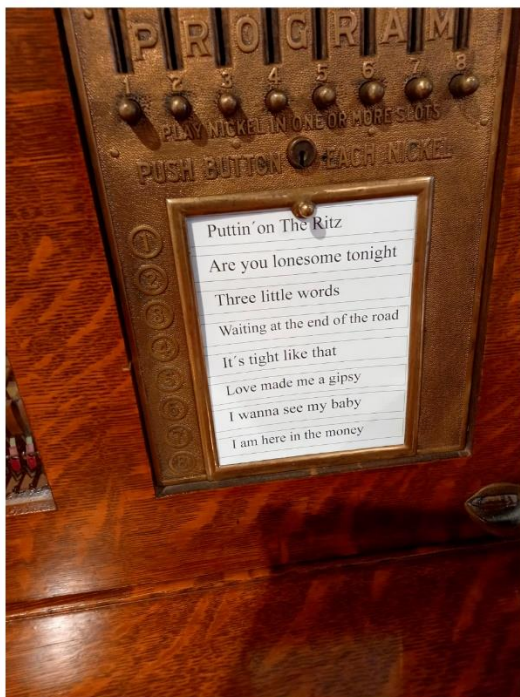 PROGRAM
1 2 3 4 5 6 7 8
PLAY NICKEL IN ONE OR MORE SLOTS
PUSH BUTTON EACH NICKEL
1 Puttin´on The Ritz
2 Are you lonesome tonight
3 Three little words
4 Waiting at the end of the road
5 It´s tight like that
6 Love made me a gipsy
7 I wanna see my baby
8 I am here in the money